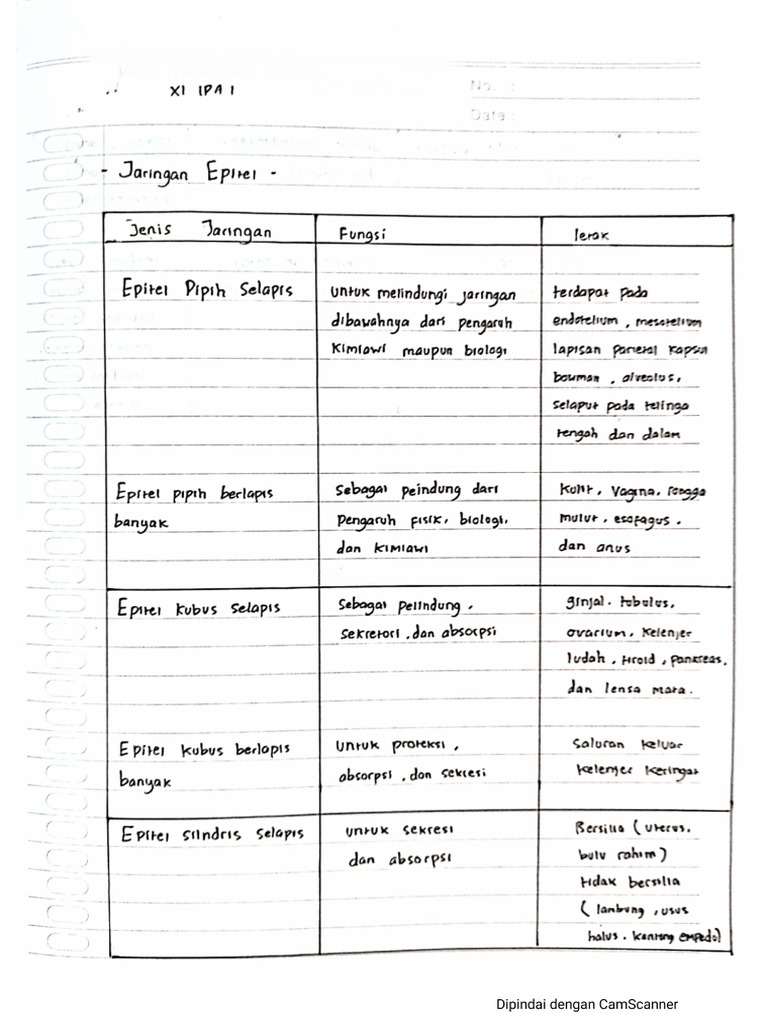 XI IPA 1
No. :
Date :
- Jaringan Epitel -
Jenis Jaringan
Fungsi
letak
Epitel Pipih Selapis
untuk melindungi jaringan
dibawahnya dari pengaruh
kimiawi maupun biologi
terdapat pada
endotelium, mesotelium
lapisan parietal kapsul
bowman, alveolus,
selaput pada telinga
tengah dan dalam
Epitel pipih berlapis
banyak
Sebagai peindung dari
pengaruh fisik, biologi,
dan kimiawi
kulit, vagina, rongga
mulut, esofagus,
dan anus
Epitel kubus selapis
Sebagai pelindung,
sekretori, dan absorpsi
ginjal, tubulus,
ovarium, kelenjer
ludah, tiroid, pankreas,
dan lensa mata.
Epitel kubus berlapis
banyak
untuk proteksi,
absorpsi, dan sekresi
Saluran keluar
kelenjer keringat
Epitel silindris selapis
untuk sekresi
dan absorpsi
Bersilia (uterus,
bulu rahim)
tidak bersilia
(lambung, usus
halus, kantong empedu)
Dipindai dengan CamScanner